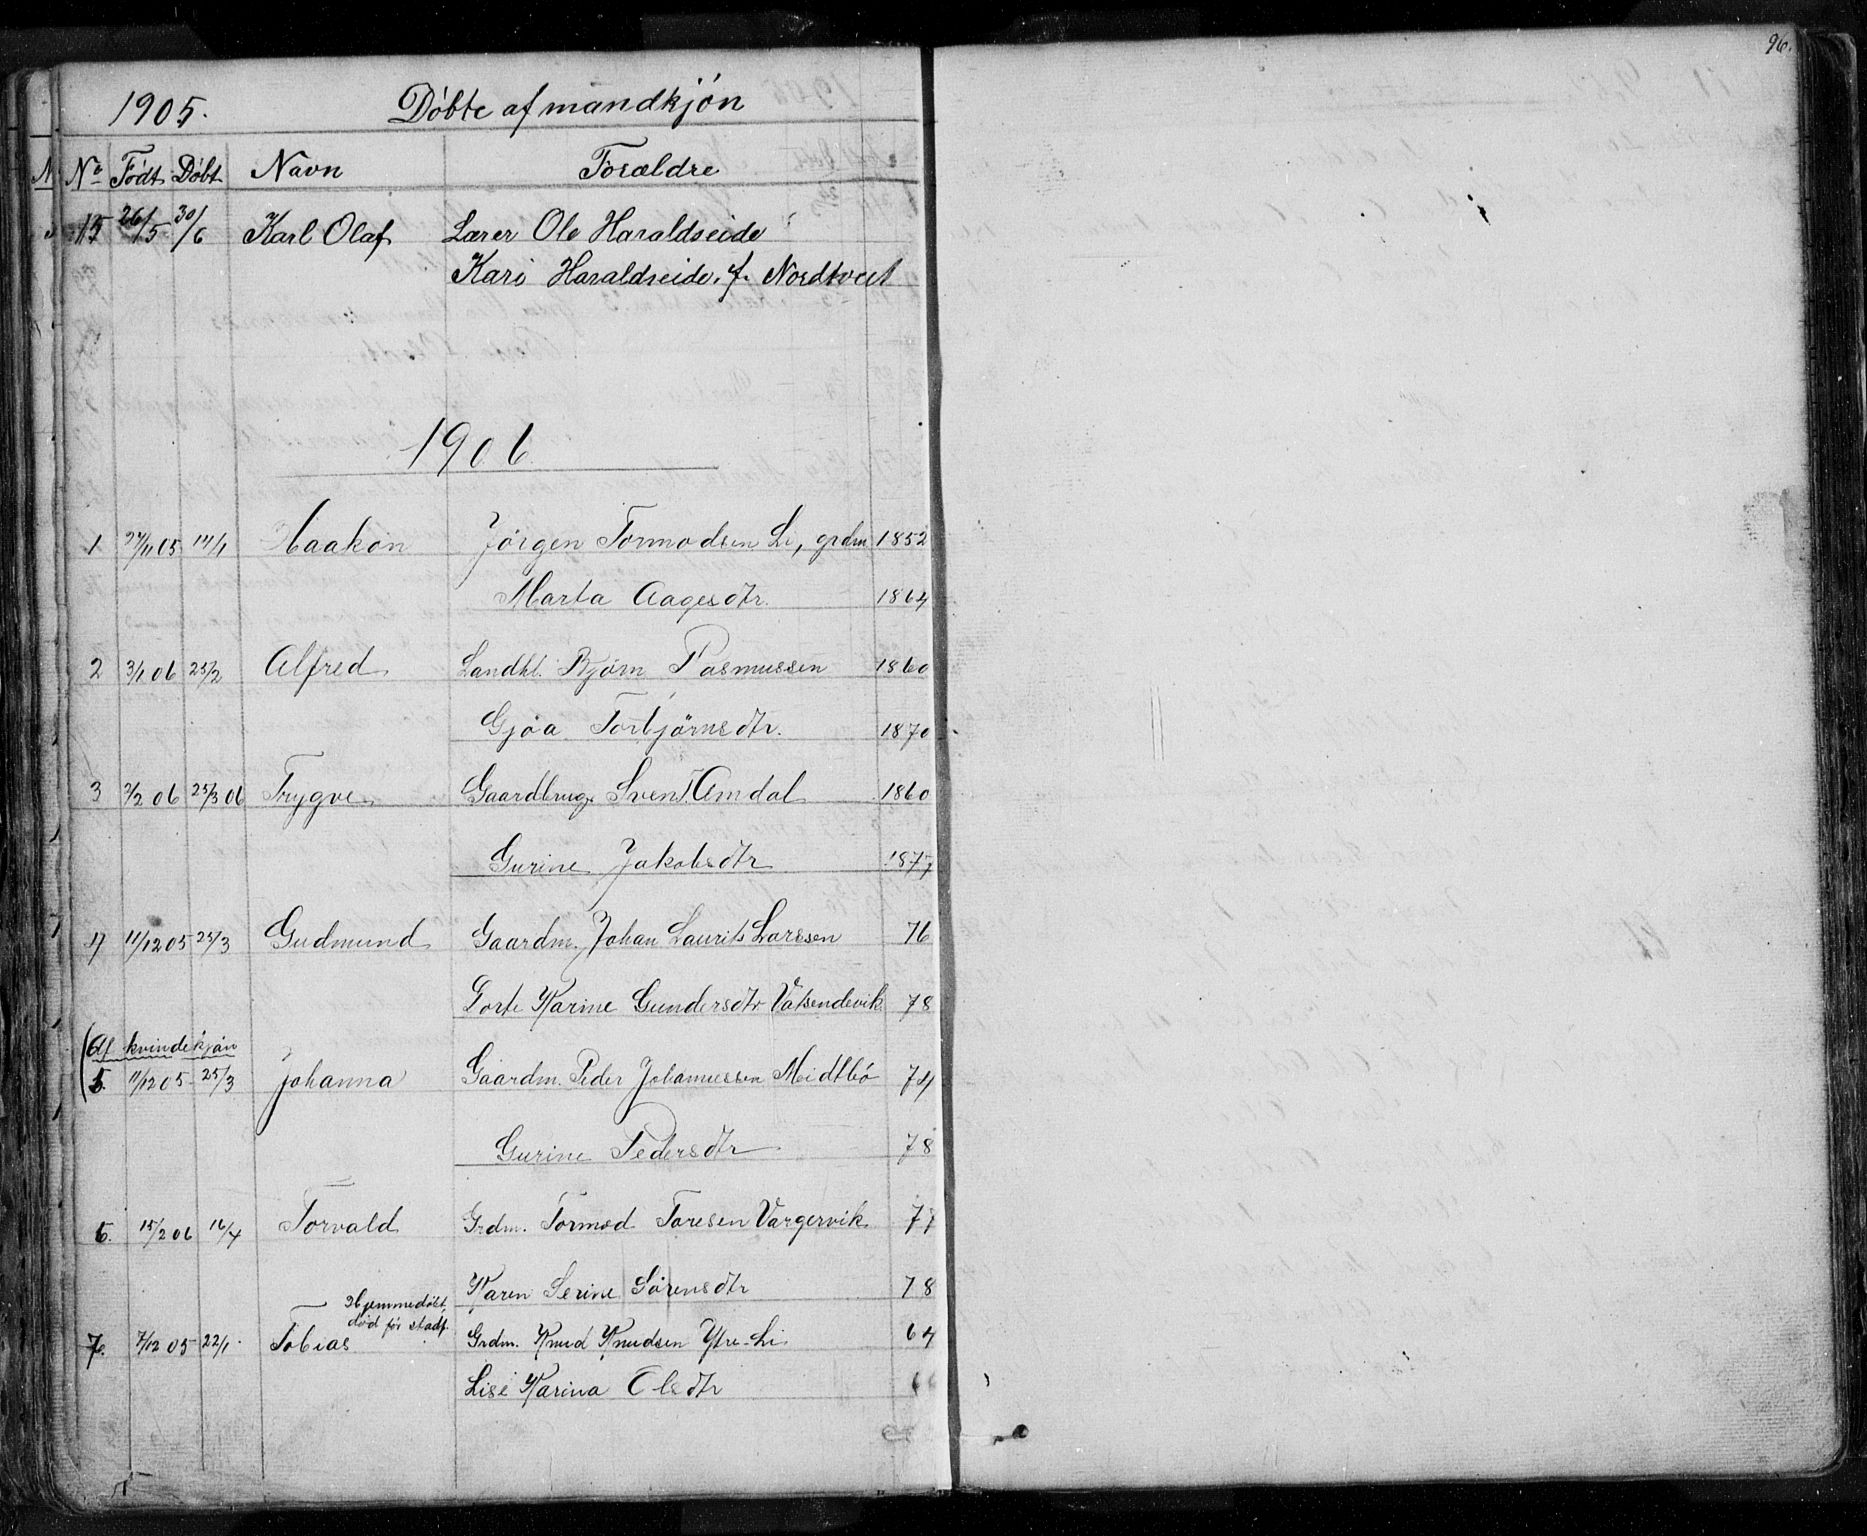 96.
1905. Döbte af mandkjön
No Födt Döbt Navn Forældre
15 26/5 30/6 Karl Olaf Lærer Ole Haraldseide
Kari Haraldseide. f. Nordtveit
1906
1 27/11 05 14/1 Haakon Jörgen Tormodsen Li, grdm 1852
Marta Aagesdtr. 1864
2 3/1 06 25/2 Alfred Landhl. Bjørn Rasmussen 1860
Gjöa Torbjörnsdtr. 1870
3 2/2 06 25/3 06 Trygve Gaardbrug. Sven T. Amdal 1860
Gurine Jakobsdtr 1877
4 11/12 05 25/3 Gudmund Gaardm. Johan Laurits Larssen 76
Karine Gundersdtr Vatsendevik 78
(Af kvindekjön
5. 11/12 05 25/3 Johanna Gaardm. Peder Johannessen Midtbö 74
Gurine Pedersdtr 78
6. 15/2 06 16/4 Torvald Grdm. Tormod Toresen Vargervik 77
Karen Serine Sörensdtr 78
Hjemmedöbt,
död för stadf.
7. 7/12 05 22/1. Tobias Grdm. Knud Knudsen Ytre-Li 64
Lise Karina Olsdtr